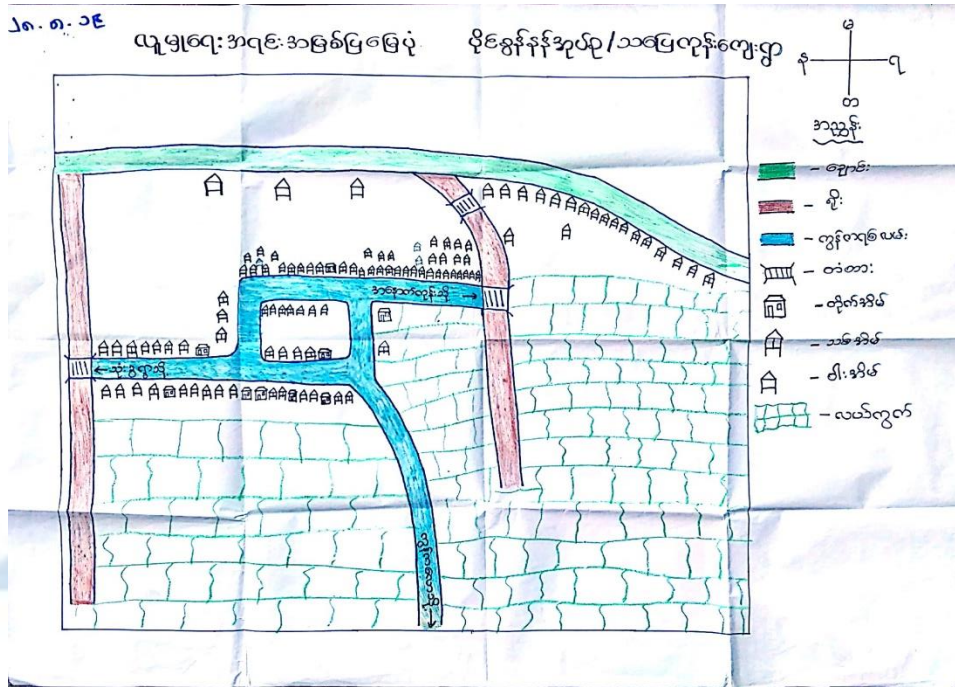 ၂၈.၈.၁၉
လူမှုရေးအရင်းအမြစ်ပြမြေပုံ ဝိုင်းနွန်နန်အုပ်စု/သပြေကုန်းကျေးရွာ
မ
န ရ
တ
အညွှန်း
- ချောင်း
- ရိုး
- ကွန်ကရစ်လမ်း
- တံတား
- တိုက်အိမ်
- သစ်အိမ်
- ဝါးအိမ်
- လယ်ကွက်
အနောက်ကုန်းသို့ →
← သုံးခွရွာသို့